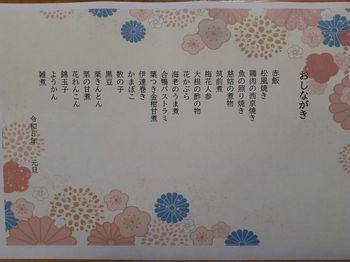 おしながき
赤飯
松風焼き
鶏肉の西京焼き
魚の照り焼き
慈姑の煮物
筑前煮
梅花人参
大根の酢の物
花かぶら
海老のうま煮
合鴨パストラミ
栗つき金柑甘煮
伊達巻き
かまぼこ
数の子
黒豆
栗きんとん
栗の甘煮
花れんこん
錦玉子
ようかん
雑煮
令和 年 元旦